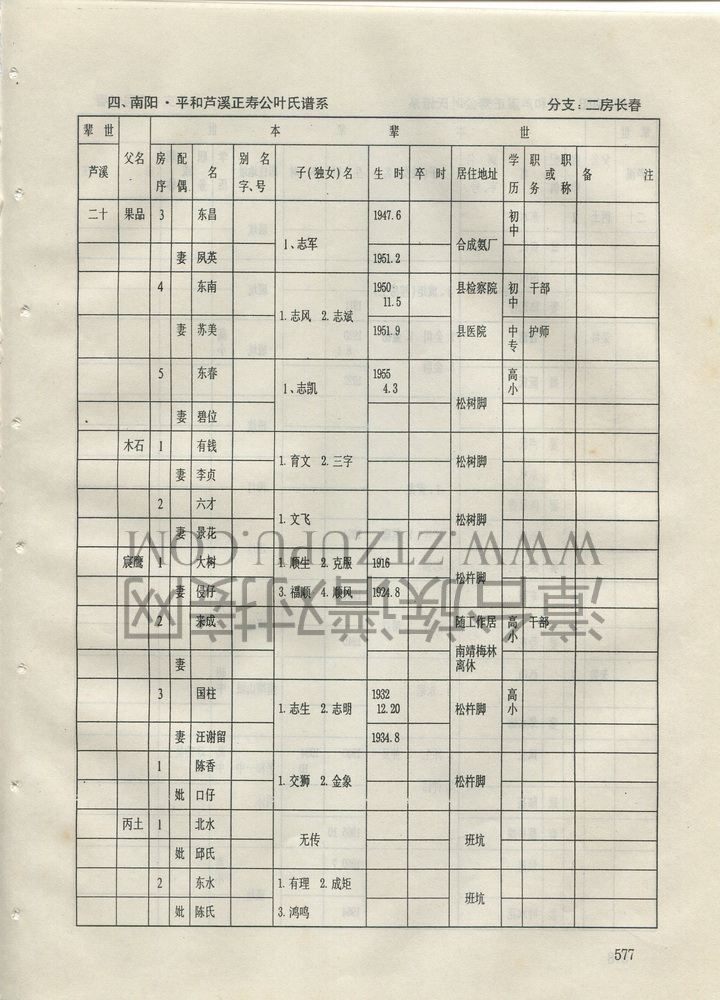 四、南阳·平和芦溪正寿公叶氏谱系 分支：二房长春
辈世 本辈世
芦溪 父名 房序 配偶 名 别名字、号 子(独女)名 生时 卒时 居住地址 学历 职务或职称 备注
二十 果品 3 东昌 1、志军 1947.6 合成氨厂 初中
妻 夙英 1951.2
4 东南 1.志风 2.志斌 1950 11.5 县检察院 初中 干部
妻 苏美 1951.9 县医院 中专 护师
5 东春 1、志凯 1955 4.3 松树脚 高小
妻 碧位
木石 1 有钱 1.育文 2.三字 松树脚
妻 李贞
2 六才 1.文飞 松树脚
妻 景花
宸鹰 1 大树 1.顺生 2.克服 1916 松柞脚
妻 侵仔 3.福顺 4.顺风 1924.8
2 来成 随工作居 高小 干部
妻 南靖梅林离休
3 国柱 1.志生 2.志明 1932 12.20 松柞脚 高小
妻 汪谢留 1934.8
1 陈香 1.交狮 2.金象 松柞脚
妣 口仔
丙土 1 北水 无传 班坑
妣 邱氏
2 东水 1.有理 2.成矩 班坑
妣 陈氏 3.鸿鸣
577
WWW.ZTZUPU.COM
漳台族谱对接网